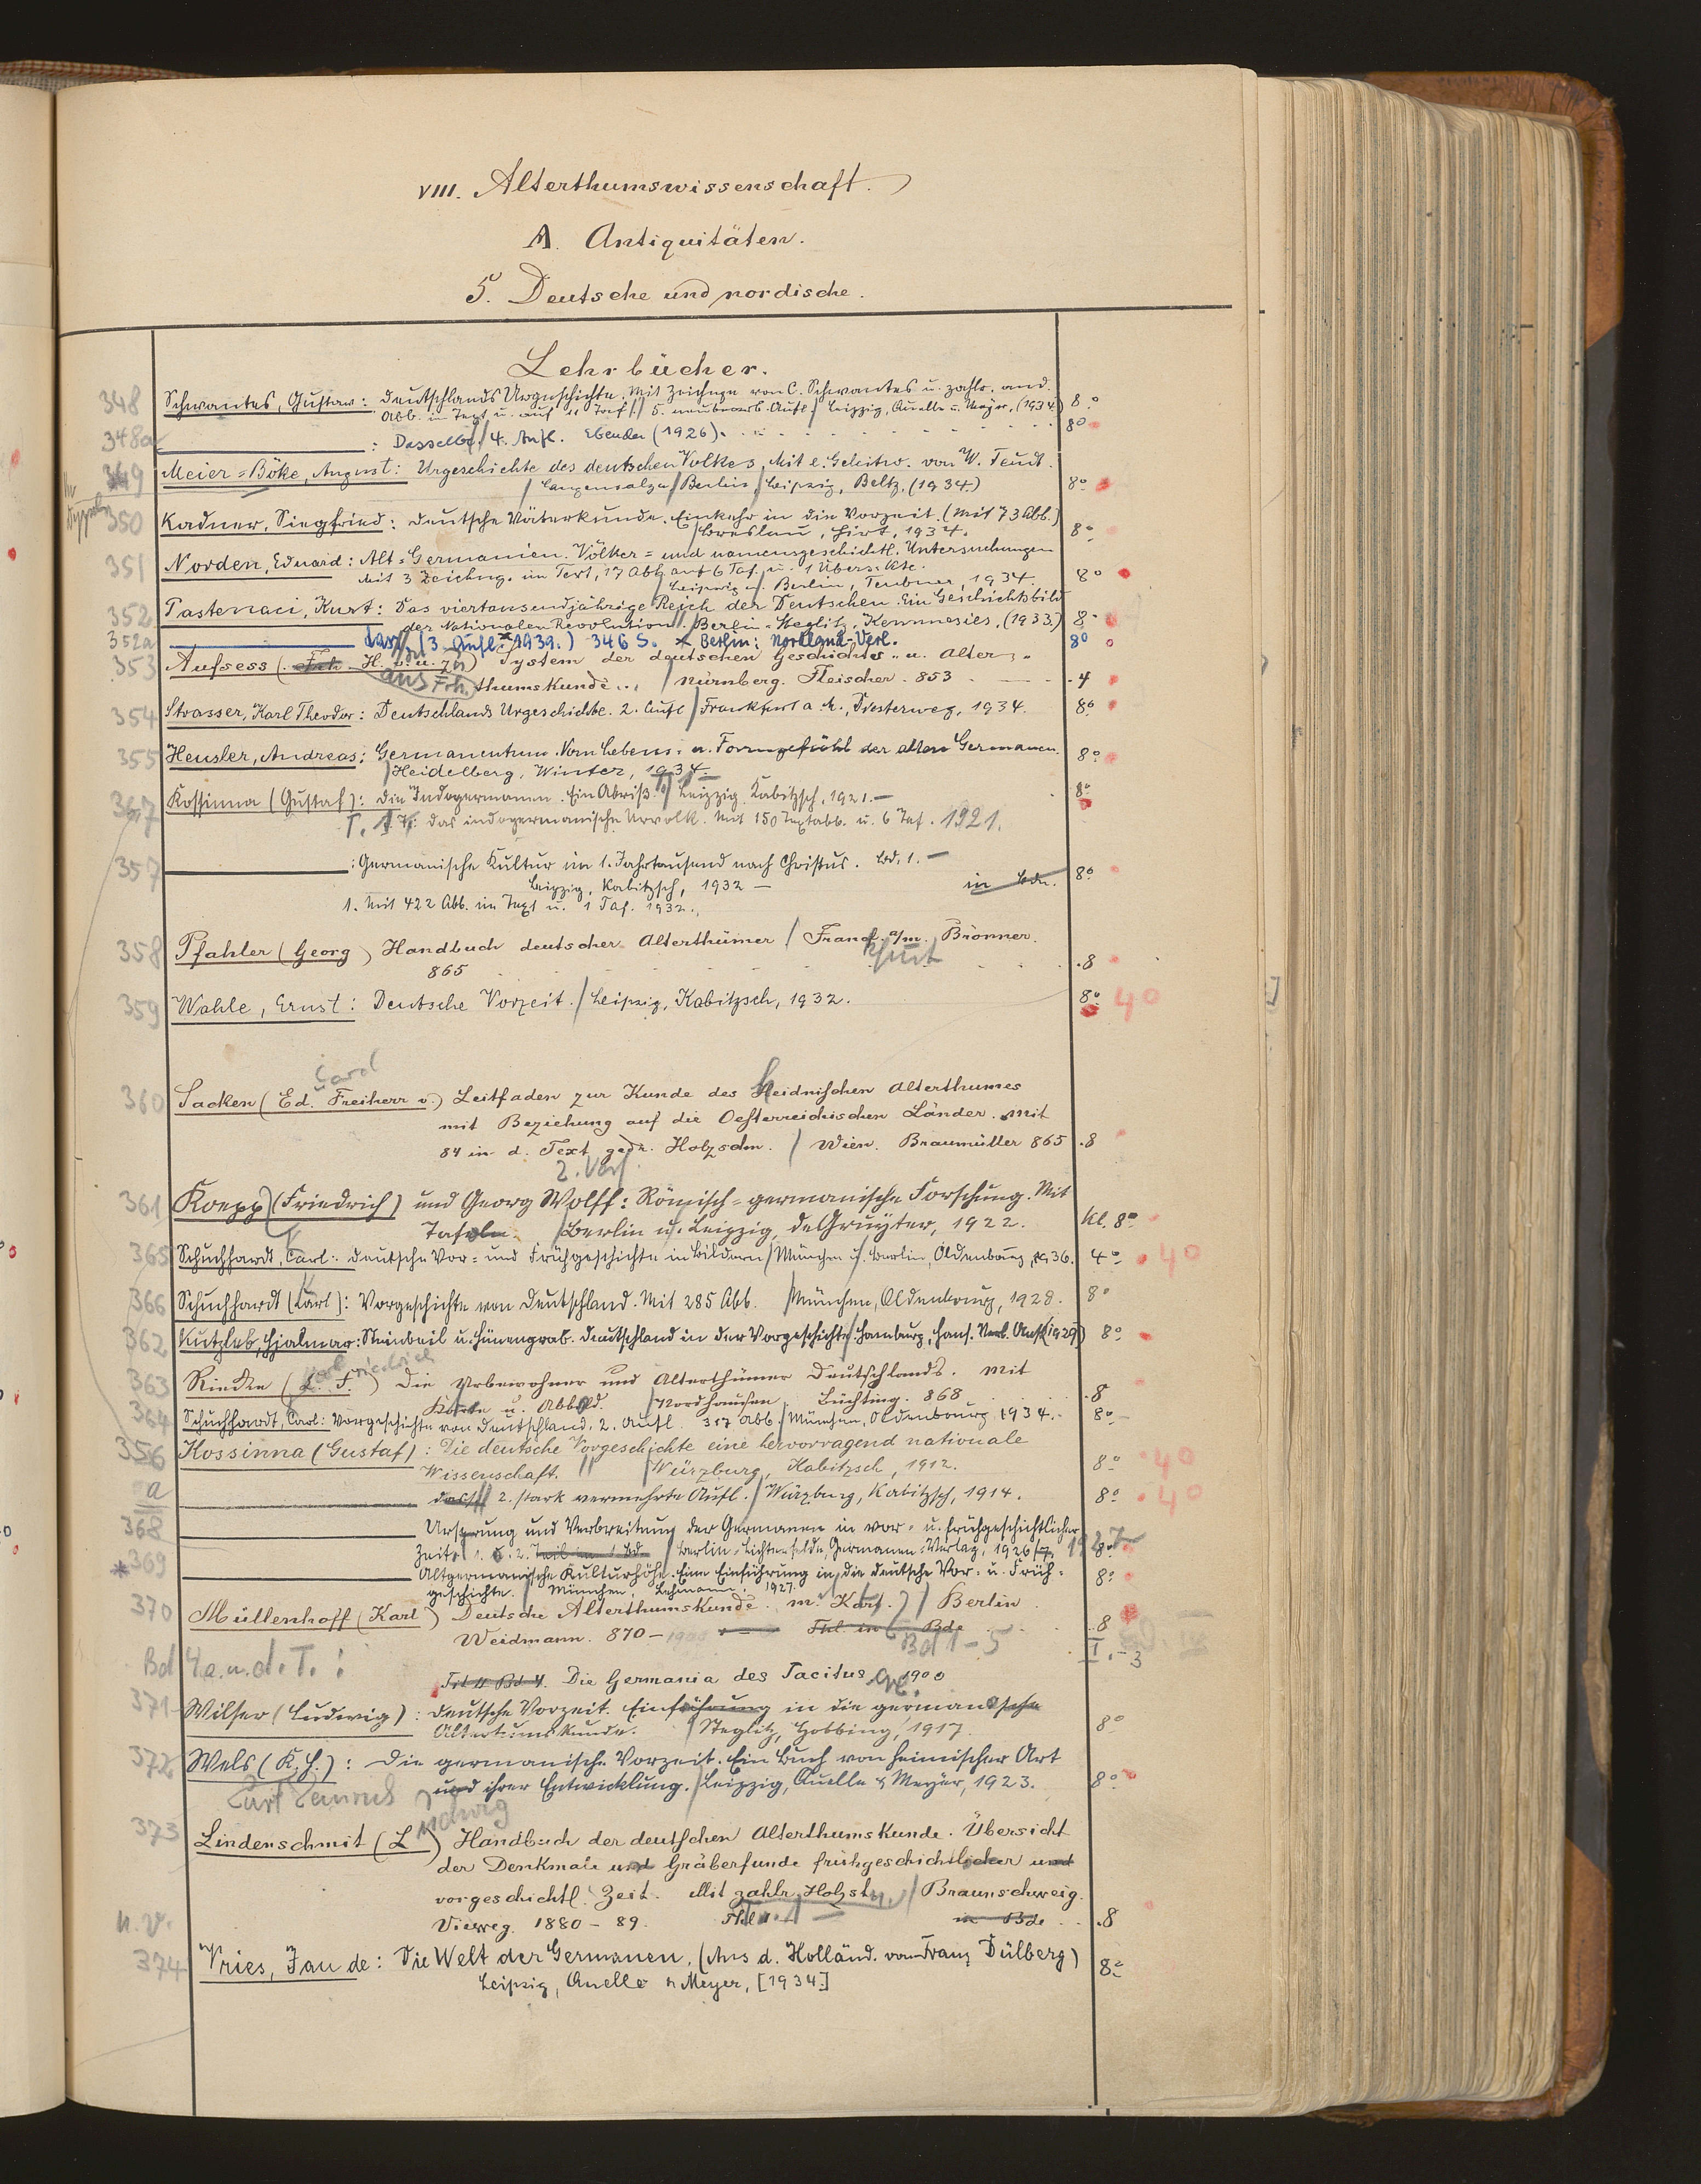 VIII. Alterthumswissenschaft.
A. Antiquitäten.
5. Deutsche und nordische.
Lehrbücher.
348 Schwantes, Gustav: Deutschlands Urgeschichte. Mit Zeichngn von C. Schwantes u. zahlr. and. 8°
Abb. im Text u. auf Taf. / 5. neubearb. Aufl / Leipzig, Quelle u. Meyer, (1934)
348a : Dasselbe, / 4. Aufl. Ebenda (1926). 8°
349 Meier-Böke, August: Urgeschichte des deutschen Volkes. Mit e. Geleitw. von W. Teudt.
/ Langensalza / Berlin / Leipzig, Beltz, (1934) 8°
350 Kadner, Siegfried: Deutsche Väterkunde. Einkehr in die Vorzeit. (Mit 73 Abb.)
/ Breslau, Hirt, 1934. 8°
351 Norden, Eduard: Alt-Germanien. Völker- und namensgeschichtl. Untersuchungen
Mit 3 Zeichng. im Text, 17 Abb. auf 6 Taf. u. 1 Übers. Kte.
/ Leipzig u. Berlin, Teubner, 1934. 8°
352 Pastenaci, Kurt: Das viertausendjährige Reich der Deutschen. Ein Geschichtsbild
der Nationalen Revolution // Berlin-Steglitz, (1933) 8°
352a dass. (3. Aufl. 1939.) 346 S. × Berlin: Nordland-Verl. 8°
353 Aufsess (Frh. H. v. u. zu) System der deutschen Geschichts- u. Alter-
aus Frh. thumskunde.. / Nürnberg. Fleischer. 853 .4
354 Strasser, Karl Theodor: Deutschlands Urgeschichte. 2. Aufl / Frankfurt a. M., Diesterweg, 1934. 8°
355 Heusler, Andreas: Germanentum. Vom Lebens- u. Formgefühl der alten Germanen. 8°
/ Heidelberg, Winter, 1934.
367 Kossinna (Gustaf): Die Indogermanen. Ein Abriß. / Leipzig. Kabitzsch, 1921.— 8°
T. 1. Das indogermanische Urvolk. Mit 150 Textabb. u. 6 Taf. 1921.
357 : Germanische Kultur im 1. Jahrtausend nach Christus. Bd. 1.— 8°
Leipzig, Kabitzsch, 1932 — in Bdn.
1. Mit 422 Abb. im Text u. 1 Taf. 1932.
358 Pfahler (Georg) Handbuch deutscher Alterthümer / Frankf. a/m. Brönner.
865 .8
359 Wahle, Ernst: Deutsche Vorzeit. / Leipzig, Kabitzsch, 1932. 8° 40
360 Sacken (Ed. Freiherr v.) Leitfaden zur Kunde des heidnischen Alterthumes
mit Beziehung auf die Oesterreichischen Länder. Mit
84 in d. Text gedr. Holzschn. / Wien. Braumüller 865 .8
2. Verf.
361 Koepp (Friedrich) und Georg Wolff: Römisch-germanische Forschung. Mit
Tafeln. / Berlin u. Leipzig, de Gruyter, 1922. Kl. 8°
365 Schuchhardt, Carl: Deutsche Vor- und Frühgeschichte in Bildern / München u. Berlin, Oldenbourg, 1936. 4° 40
366 Schuchhardt (Carl): Vorgeschichte von Deutschland. Mit 285 Abb. / München, Oldenbourg, 1928. 8°
362 Kutzleb, Hjalmar: Steinbeil u. Hünengrab. Deutschland in der Vorgeschichte / Hamburg, Hans. Verl. Anst (1929) 8°
363 Riecke (C. F.) Die Urbewohner und Alterthümer Deutschlands. Mit
Karte u. Abbild. / Nordhausen. Büchting. 868 .8
364 Schuchhardt, Carl: Vorgeschichte von Deutschland. 2. Aufl. 317 Abb. / München, Oldenbourg 1934. 8°
356 Kossinna (Gustaf): Die deutsche Vorgeschichte eine hervorragend nationale
Wissenschaft. // Würzburg, Kabitzsch, 1912. 8° 40
a dass. / 2. stark vermehrte Aufl. / Würzburg, Kabitzsch, 1914. 8° 40
368 Ursprung und Verbreitung der Germanen in vor- u. frühgeschichtlicher
Zeit. 1. u. 2. Teil in 1 Bd. / Berlin-Lichterfelde, Germanen-Verlag, 1926/7. 1927 8°
*369 Altgermanische Kulturhöhe. Eine Einführung in die deutsche Vor- u. Früh- 8°
geschichte. / München, Lehmann, 1927.
370 Müllenhoff (Karl) Deutsche Alterthumskunde. m. Kart. / Berlin.
Weidmann. 870 – 1900 Thl. in 6 Bde .8
Bd 1–5
Bd 4 a. u. d. T.: Die Germania des Tacitus 1900
371 Wilser (Ludwig): Deutsche Vorzeit. Einführung in die germanische
Altertumskunde. / Steglitz, Hobbing, 1917. 8°
372 Wels (K. H.): Die germanische Vorzeit. Ein Buch von heimischer Art
und ihrer Entwicklung. / Leipzig, Quelle & Meyer, 1923. 8°
Kurt Heinrich
373 Lindenschmit (L udwig) Handbuch der deutschen Alterthumskunde. Übersicht
der Denkmale und Gräberfunde frühgeschichtlicher und
vorgeschichtl. Zeit. Mit zahlr. Holzst. / Braunschweig.
u. V. Vieweg. 1880 – 89. Thl 1 – in Bde .8
374 Vries, Jan de: Die Welt der Germanen. (Aus d. Holländ. von Franz Dülberg) 8°
Leipzig, Quelle & Meyer, [1934]